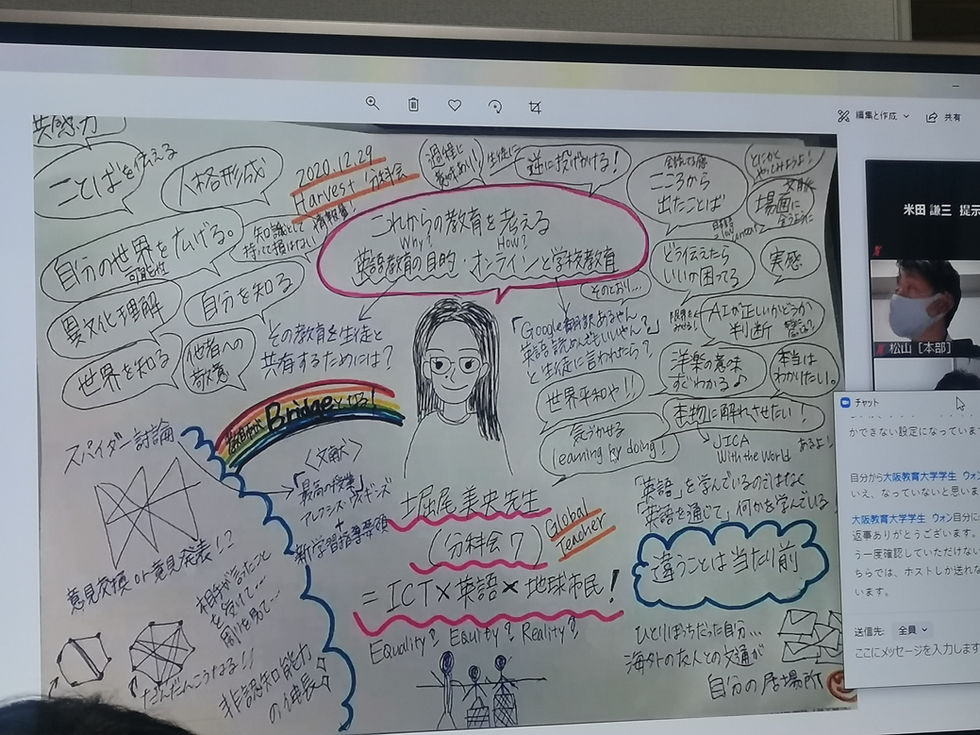 編集と作成
共有
共感力
ことばを伝える
人格形成
2020.12.29
Harvest 分科会
逆に投げかける!
こころから
出たことば
場面に
自分の世界を広げる。
知識として
持って損はない
情報量!
これからの教育を考える
Why? How?
英語教育の目的・オンラインと学校教育
どう伝えたら
いいか困ってる
実感
異文化理解
自分を知る
その教育を生徒と
共有するためには?
そのとおり…
「Google翻訳あるやん
英語読めんでもいいやん?」
と生徒に言われたら?
AIが正しいかどうか
判断
世界を知る
他者への
敬意
洋楽の意味
までわかる♪
本当は
わかりたい。
世界平和や!!
本物に触れさせたい!
JICA
With the World
あるよ!
気づかせる
learning by doing!
Bridgeになる!
スパイダー討論
〈文献〉
「最高の授業」
アレクシス・ウィギンズ
+
新学習指導要領
堀尾美央先生
(分科会7)
Global
Teacher
= ICT×英語×地球市民!
Equality? Equity? Reality?
「英語」を学んでいるのではなく
「英語を通じて」何かを学んでいる!
違うことは当たり前
意見交換 or 意見発表!?
相手が言ったこと
を受けて…
周りを見て…
だんだんこうなる!!
非認知能力
の伸長
ひとりぼっちだった自分…
海外の友人との交流が
自分の居場所
米田 謙三 提示
松山【本部】
チャット
ができない設定になっていま
自分から大阪教育大学学生 ウォン
いえ、なっていないと思いま
大阪教育大学学生 ウォン自分に
返事ありがとうございます。
う一度確認していただけない
ちらでは、ホストしか送れな
います。
送信先: 全員
ここにメッセージを入力します